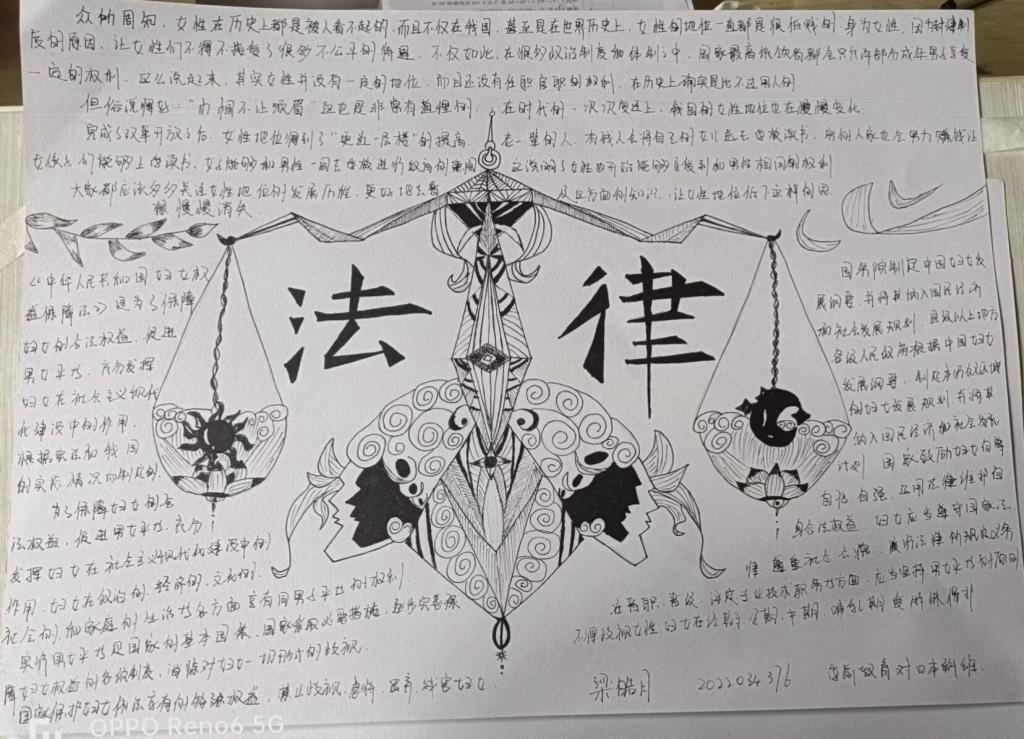 众所周知，女性在历史上都是被人看不起的，而且不仅在我国，甚至是在世界历史上，女性的地位一直都是很低贱的，身为女性，因为封建制
度的原因，让女性们不得不接受了很多不公平的待遇，不仅如此，在很多政治制度和体制之中，国家最高统领者都会只允许部分成年男子享受
一定的权利，这么说起来，其实女性并没有一定的地位，而且还没有任职官职的权利，在历史上确实是比不过男人的
但俗说得好："巾帼不让须眉"这也是非常有道理的，在时代的一次次变迁上，我国的女性地位也在慢慢变化
完成了改革开放之后，女性地位得到了"更近一层楼"的提高，老一辈的人，有钱人会将自己的女儿送去学校读书，穷的人家也会努力赚钱让
女孩子们能够上学读书，女子能够和男性一同去学校进行教育
这说明了女性也开始能够享受到和男性相同的权利
大家都应该多多关注女性地位的发展历程，更好地去看
及这方面的知识，让女性地位低下这样的思
想慢慢消失
法律
《中华人民共和国妇女权
益保障法》是为了保障
妇女的合法权益，促进
男女平等，充分发挥
妇女在社会主义现代
化建设中的作用，
根据宪法和我国
的实际情况而制定的
为了保障妇女的合
法权益，促进男女平等，充分
发挥妇女在社会主义现代化建设中的
作用，妇女在政治的，经济的，文化的，
社会的和家庭的生活等各方面享有同男子平等的权利
实行男女平等是国家的基本国策，国家采取必要措施，逐步完善保
障妇女权益的各项制度，消除对妇女一切形式的歧视
国家保护妇女依法享有的特殊权益，禁止歧视，虐待，遗弃，残害妇女
国务院制定中国妇女发
展纲要，并将其纳入国民经济
和社会发展规划，县级以上地方
各级人民政府根据中国妇女
发展纲要，制定本行政区域
的妇女发展规划，并将其
纳入国民经济和社会发展
计划 国家鼓励妇女自尊
自信 自强，运用法律维护自
身合法权益 妇女应当遵守国家法
律 尊重社会公德，履行法律所规定义务
在晋职，晋级，评定专业技术职务等方面，应当坚持男女平等的原则
不得歧视女性 妇女在经期，孕期，产期，哺乳期受特殊保护
梁皓月 2022034376 学前教育对口本科班
OPPO Reno6 5G